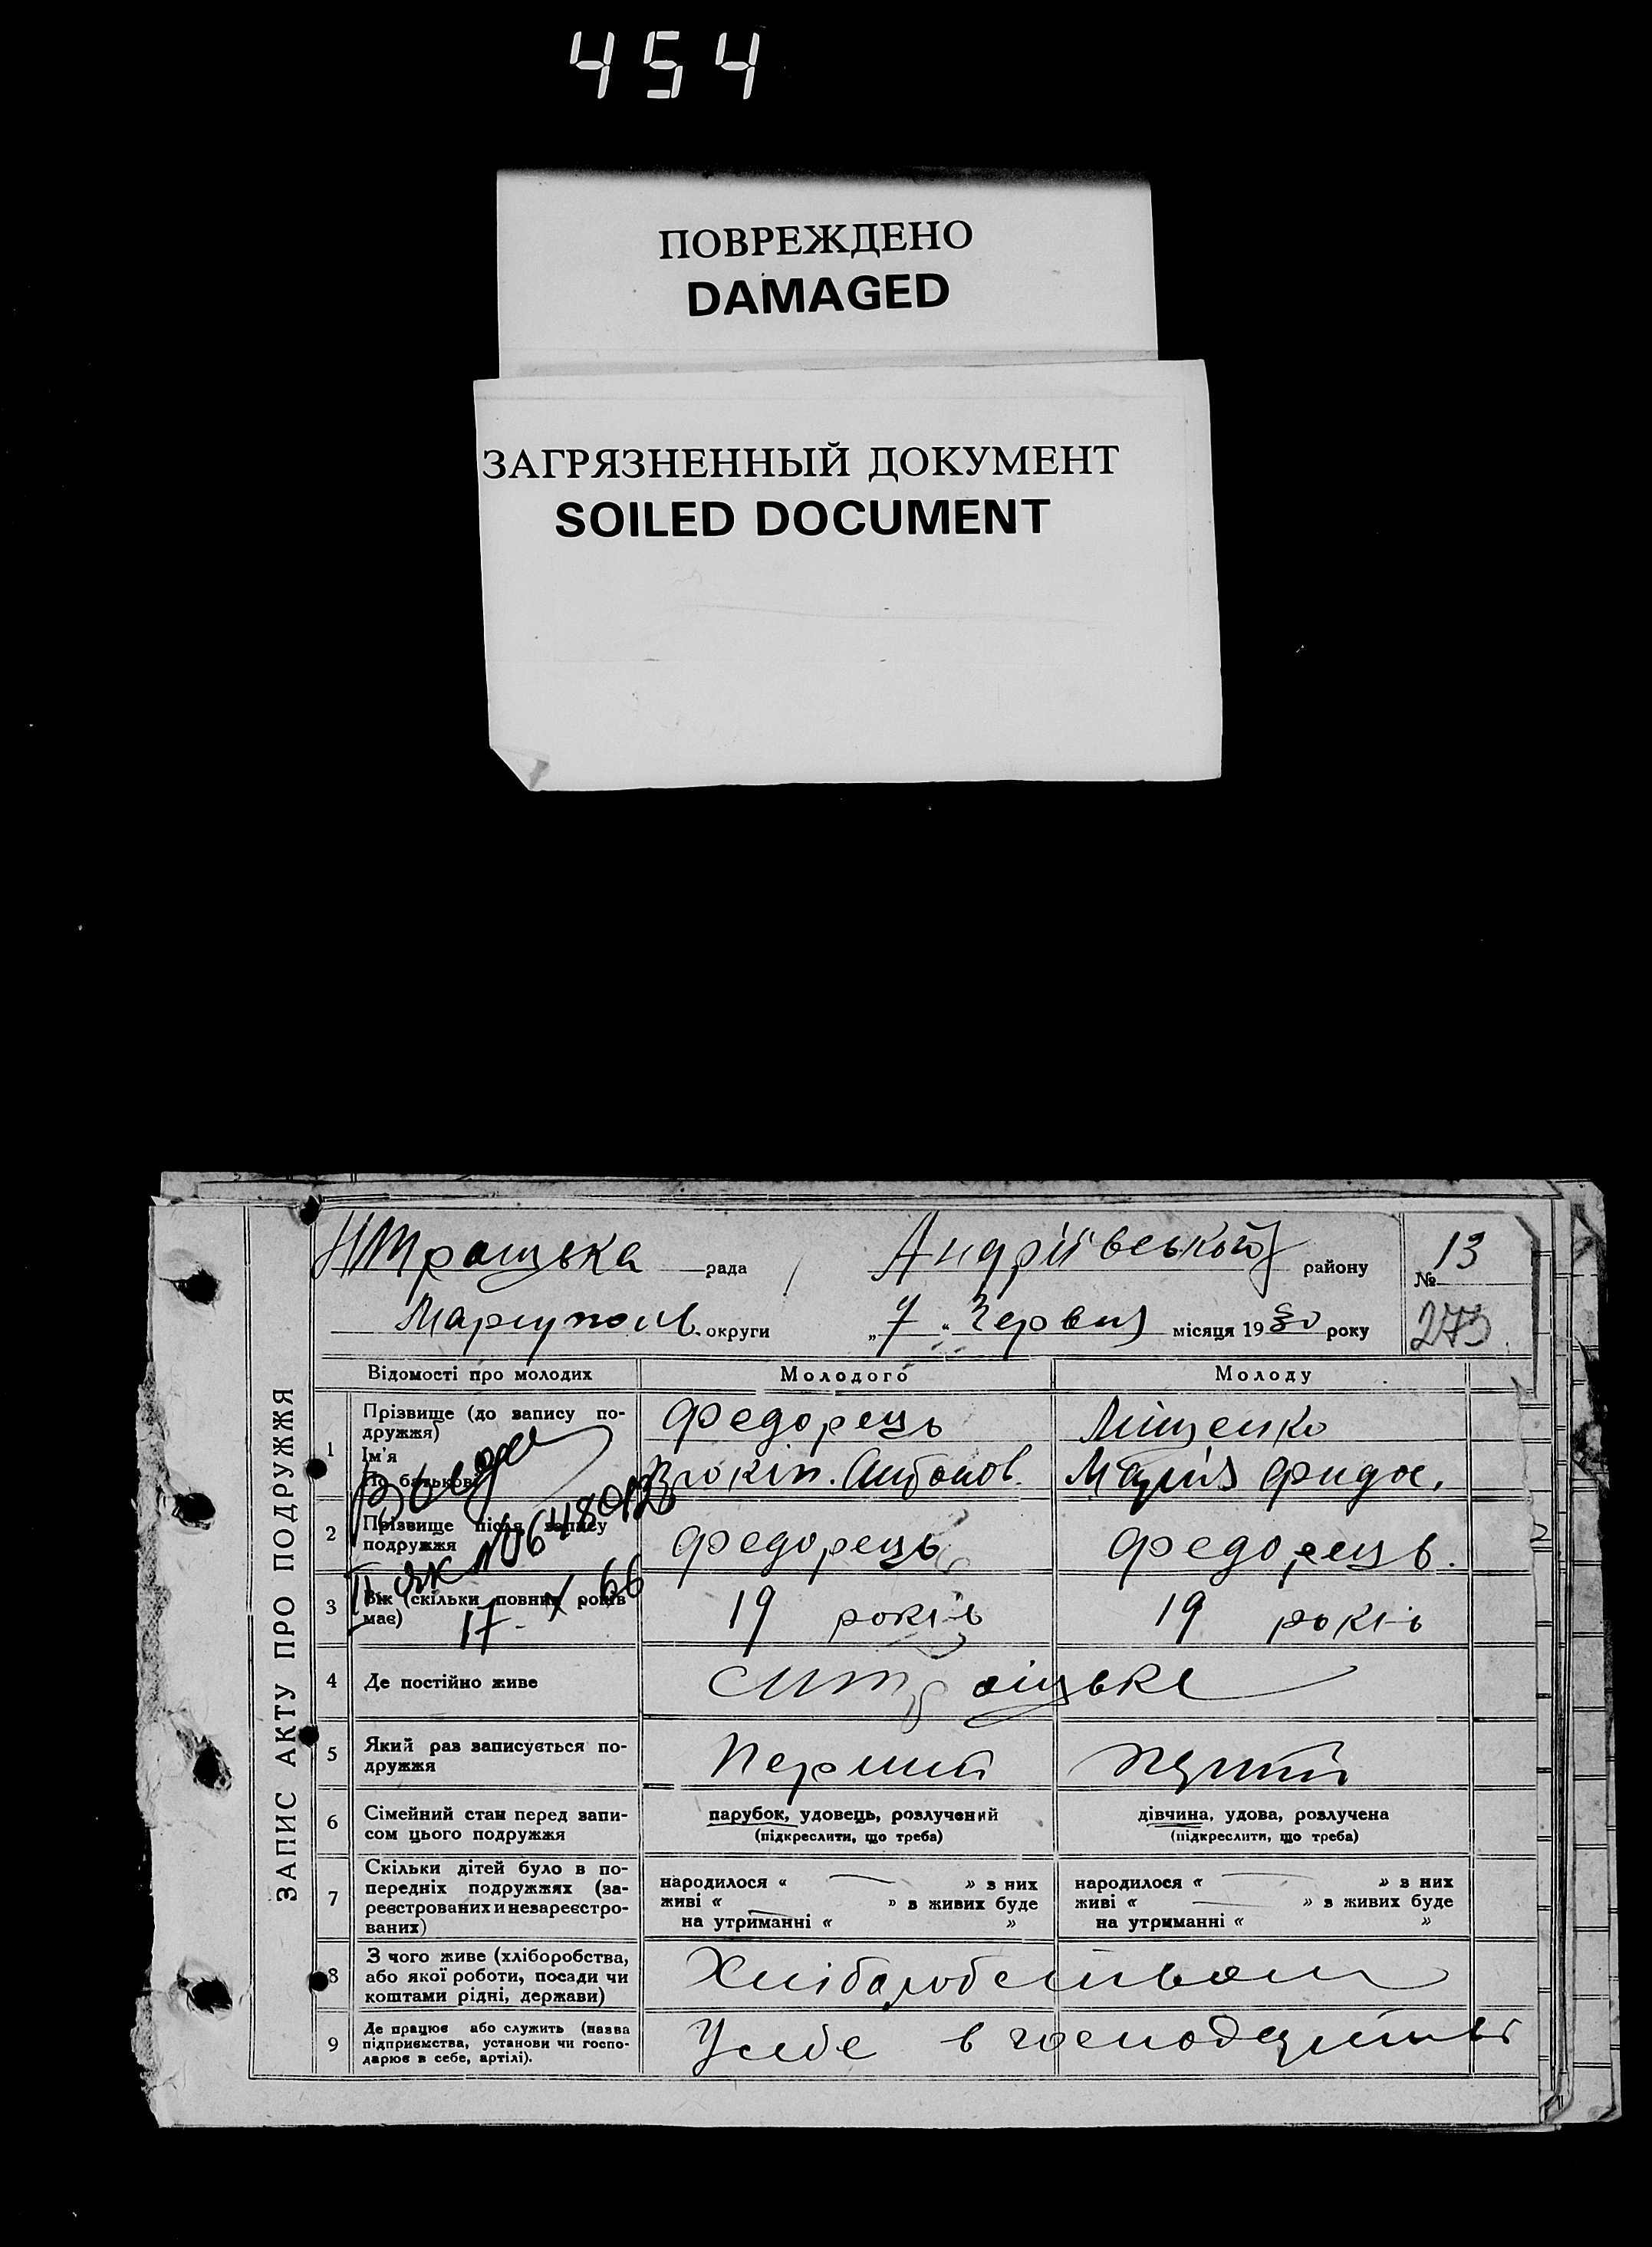 454
ПОВРЕЖДЕНО
DAMAGED
ЗАГРЯЗНЕННЫЙ ДОКУМЕНТ
SOILED DOCUMENT
ЗАПИС АКТУ ПРО ПОДРУЖЖЯ
рада Андріївського району № 13
Маріуполь. округи „7“ Червня місяця 1930 року 273
Відомості про молодих Молодого Молоду
1 Прізвище (до запису по-
дружжя) Федорець Міщенко
Ім'я
По батькові Антонов. Марія
2 Прізвище після запису
подружжя Федорець Федорець.
3 Вік (скільки повних років
має) 19 років 19 років
ІІ ЯК № 648013
17 X 66
4 Де постійно живе
5 Який раз записується по-
дружжя Перший перший
6 Сімейний стан перед запи-
сом цього подружжя
парубок, удовець, розлучений
(підкреслити, що треба)
дівчина, удова, розлучена
(підкреслити, що треба)
7 Скільки дітей було в по-
передніх подружжях (за-
реєстрованих и незареєстро-
ваних)
народилося « » з них
живі « » в живих буде
на утриманні « »
народилося « » з них
живі « » в живих буде
на утриманні « »
8 З чого живе (хліборобства,
або якої роботи, посади чи
коштами рідні, держави)
Хліборобством
9 Де працює або служить (назва
підприємства, установи чи госпо-
дарює в себе, артілі).
У себе в господарстві